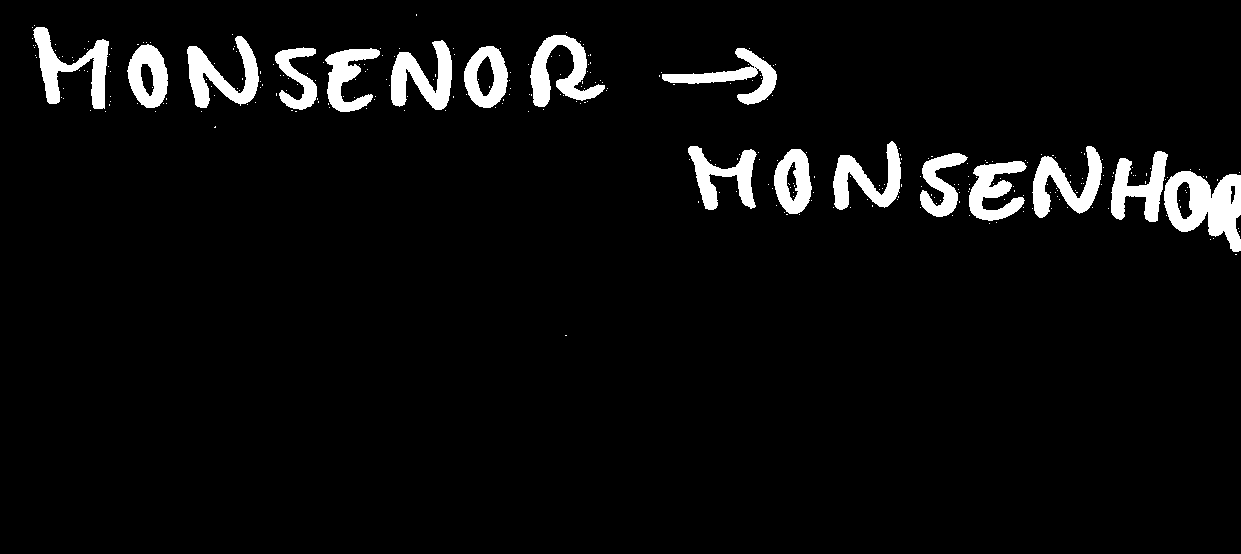 MONSENOR →
MONSENHOR